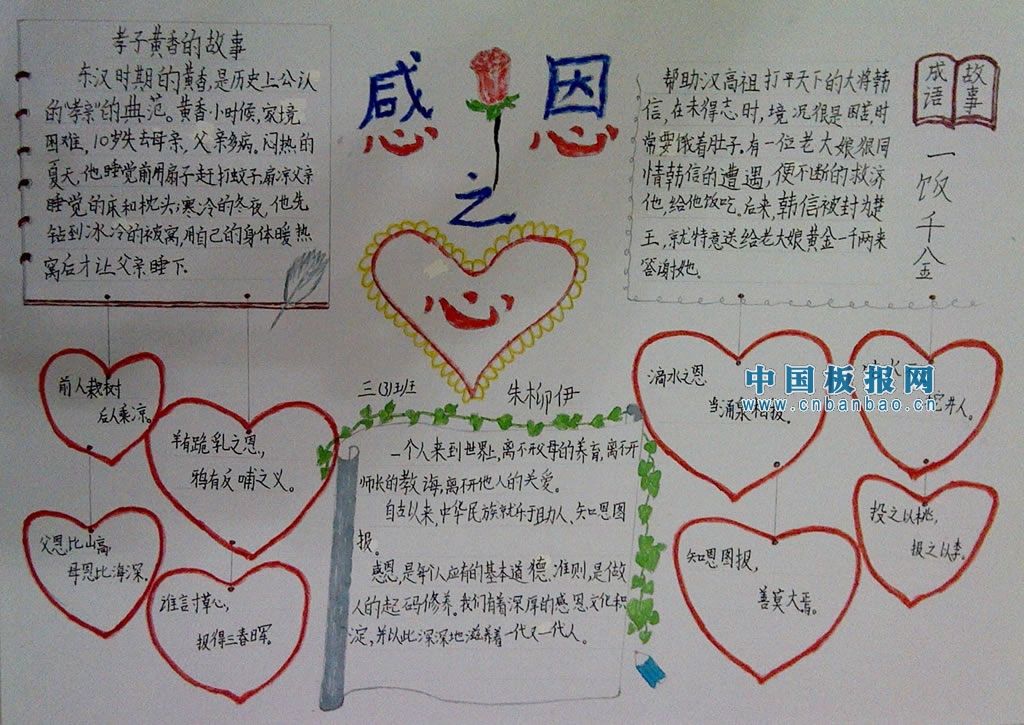 孝子黄香的故事
东汉时期的黄香,是历史上公认
的“孝亲”的典范。黄香小时候,家境
困难,10岁失去母亲,父亲多病。闷热的
夏天,他睡觉前用扇子赶打蚊子,扇凉父亲
睡觉的床和枕头;寒冷的冬夜,他先
钻到冰冷的被窝,用自己的身体暖热
窝后才让父亲睡下.
感恩
之
心
帮助汉高祖打平天下的大将韩
信,在未得志时,境况很是困苦,时
常要饿着肚子.有一位老大娘狠同
情韩信的遭遇,便不断的救济
他,给他饭吃。后来,韩信被封为楚
王,就特意送给老大娘黄金一千两来
答谢她。
成语
故事
一饭千金
前人栽树
后人乘凉。
羊有跪乳之恩,
鸦有反哺之义。
父恩比山高,
母恩比海深。
谁言寸草心,
报得三春晖。
三(3)班 朱柳伊
一个人来到世界上,离不开父母的养育,离不开
师长的教诲,离不开他人的关爱。
自古以来,中华民族就乐于助人、知恩图
报。
感恩,是每个人应有的基本道德准则,是做
人的起码修养。我们有着深厚的感恩文化积
淀,并以此深深地滋养着一代又一代人。
滴水之恩
当涌泉相报。
水
挖井人。
知恩图报,
善莫大焉。
投之以桃,
报之以李。
中国板报网
www.cnbanbao.cn